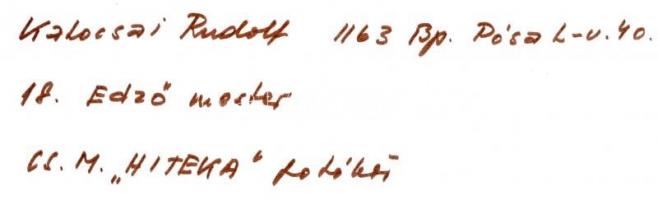 Kalocsai Rudolf 1163 Bp. Pósa L-u. 40.
18. Edző mester
CS. M. „HITEKA"